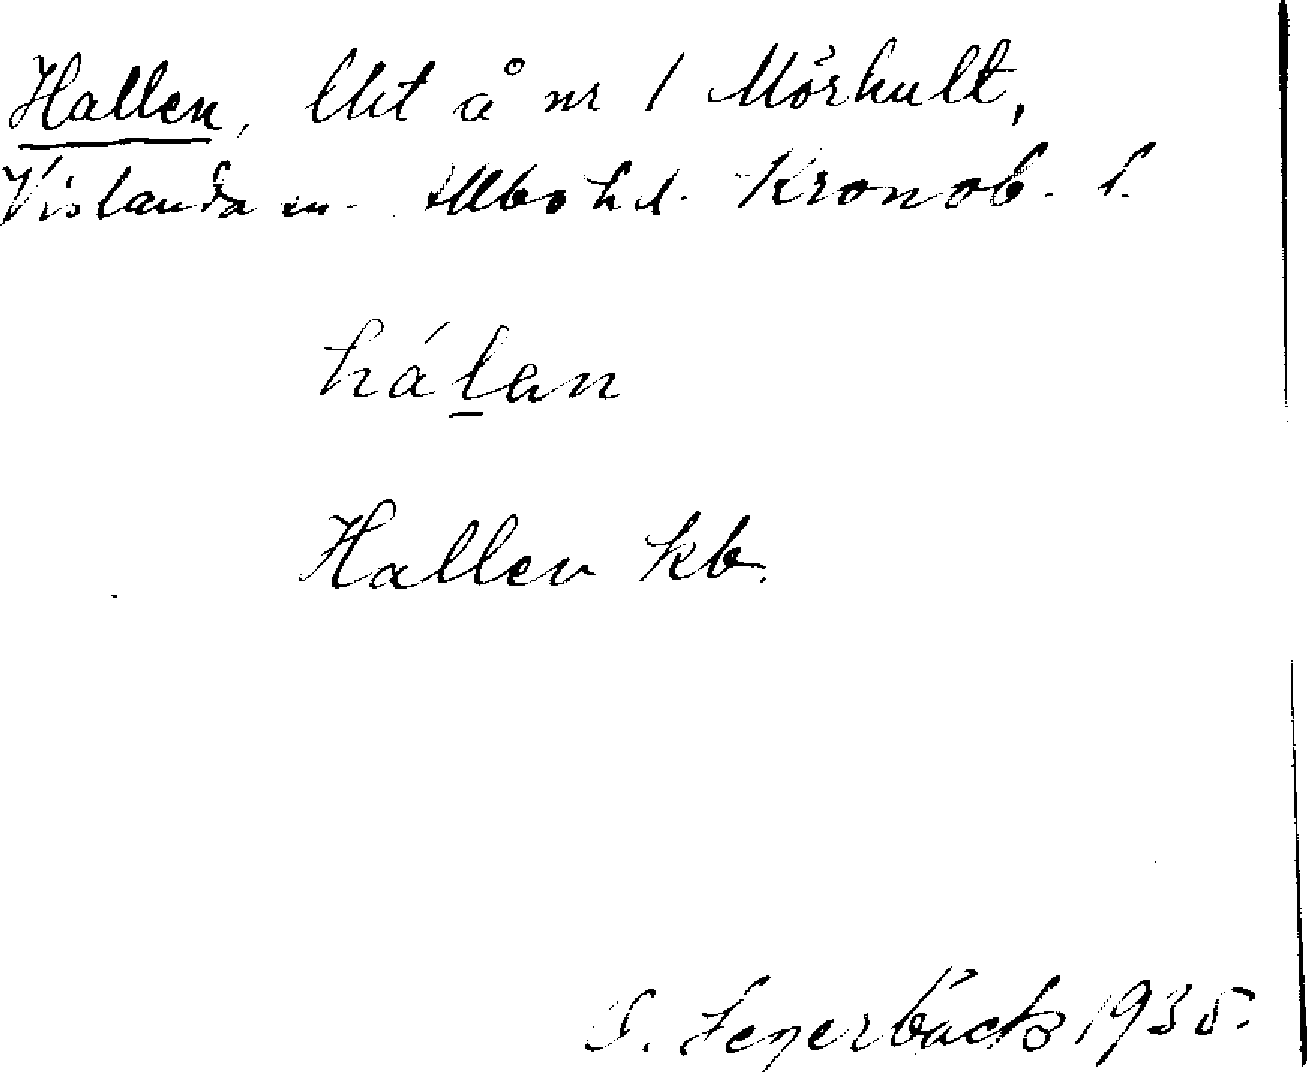 Hallen, lht å nr 1 Mörhult,
Vislanda sn. Allbo hd. Kronob. l.
hálan
Hallen kb.
S. Fejerbäck 1935.